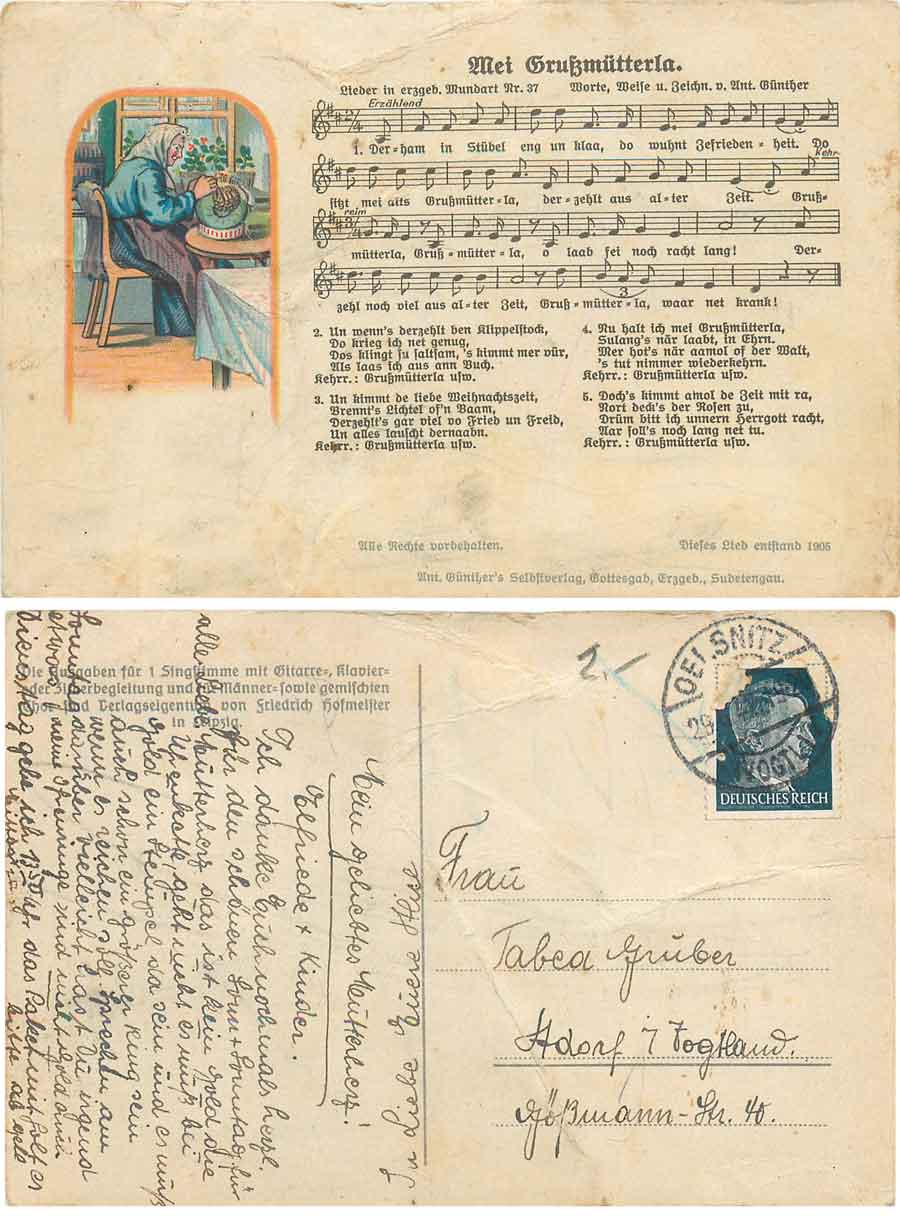 Mei Grußmütterla.
Lieder in erzgeb. Mundart Nr. 37 Worte, Weise u. Zeichn. v. Ant. Günther
Erzählend
1. Der-ham in Stübel eng un klaa, do wuhnt Zefrieden-heit. Do
Kehr-
sitzt mei alts Grußmütter-la, der-zehlt aus al-ter Zeit. Gruß-
reim
mütterla, Gruß-mütter-la, o laab fei noch racht lang! Der-
3
zehl noch viel aus al-ter Zeit, Gruß-mütter-la, waar net krank!
2. Un wenn's derzehlt ben Klippelstock,
Do krieg ich net genug,
Dos klingt su saltsam, 's kimmt mer vür,
Als laas ich aus ann Buch.
Kehrr.: Grußmütterla usw.
3. Un kimmt de liebe Weihnachtszeit,
Brennt's Lichtel of'n Baam,
Derzehlt's gar viel vo Fried un Freid,
Un alles lauscht dernaabn.
Kehrr.: Grußmütterla usw.
4. Nu halt ich mei Grußmütterla,
Sulang's när laabt, in Ehrn.
Mer hot's när aamol of der Walt,
's tut nimmer wiederkehrn.
Kehrr.: Grußmütterla usw.
5. Doch's kimmt amol de Zeit mit ra,
Nort deck's der Rosen zu,
Drüm bitt ich unnern Herrgott racht,
Nar soll's noch lang net tu.
Kehrr.: Grußmütterla usw.
Alle Rechte vorbehalten. Dieses Lied entstand 1905
Ant. Günther's Selbstverlag, Gottesgab, Erzgeb., Sudetengau.
Die Ausgaben für 1 Singstimme mit Gitarre-, Klavier-
oder Zitherbegleitung und für Männer- sowie gemischten
Chor sind Verlagseigentum von Friedrich Hofmeister
in Leipzig.
OELSNITZ
29
VOGTL
DEUTSCHES REICH
Frau
Tabea Gruber
Adorf i/Vogtland.
Gößmann-Str. 40.
Mein geliebtes Mutterherz!
Elfriede + Kinder.
Ich danke Euch nochmals herzl.
für den schönen Sonn + Sonntag für
allerliebe Mutterherz das ist kein Gold die
Uhrkette, geht nicht es muß bei
Gold ein Stempel da sein und es muß
auch schon ein größerer Ring sein
wenn es reichen soll. Sprachen am
Sonntag darüber vielleicht hast Du irgend
etwas, meine Ohrringe sind nicht Gold
Dienstag gehe ich 13.50 Uhr das Paket mit holt es
bitte ab
In Liebe Eure